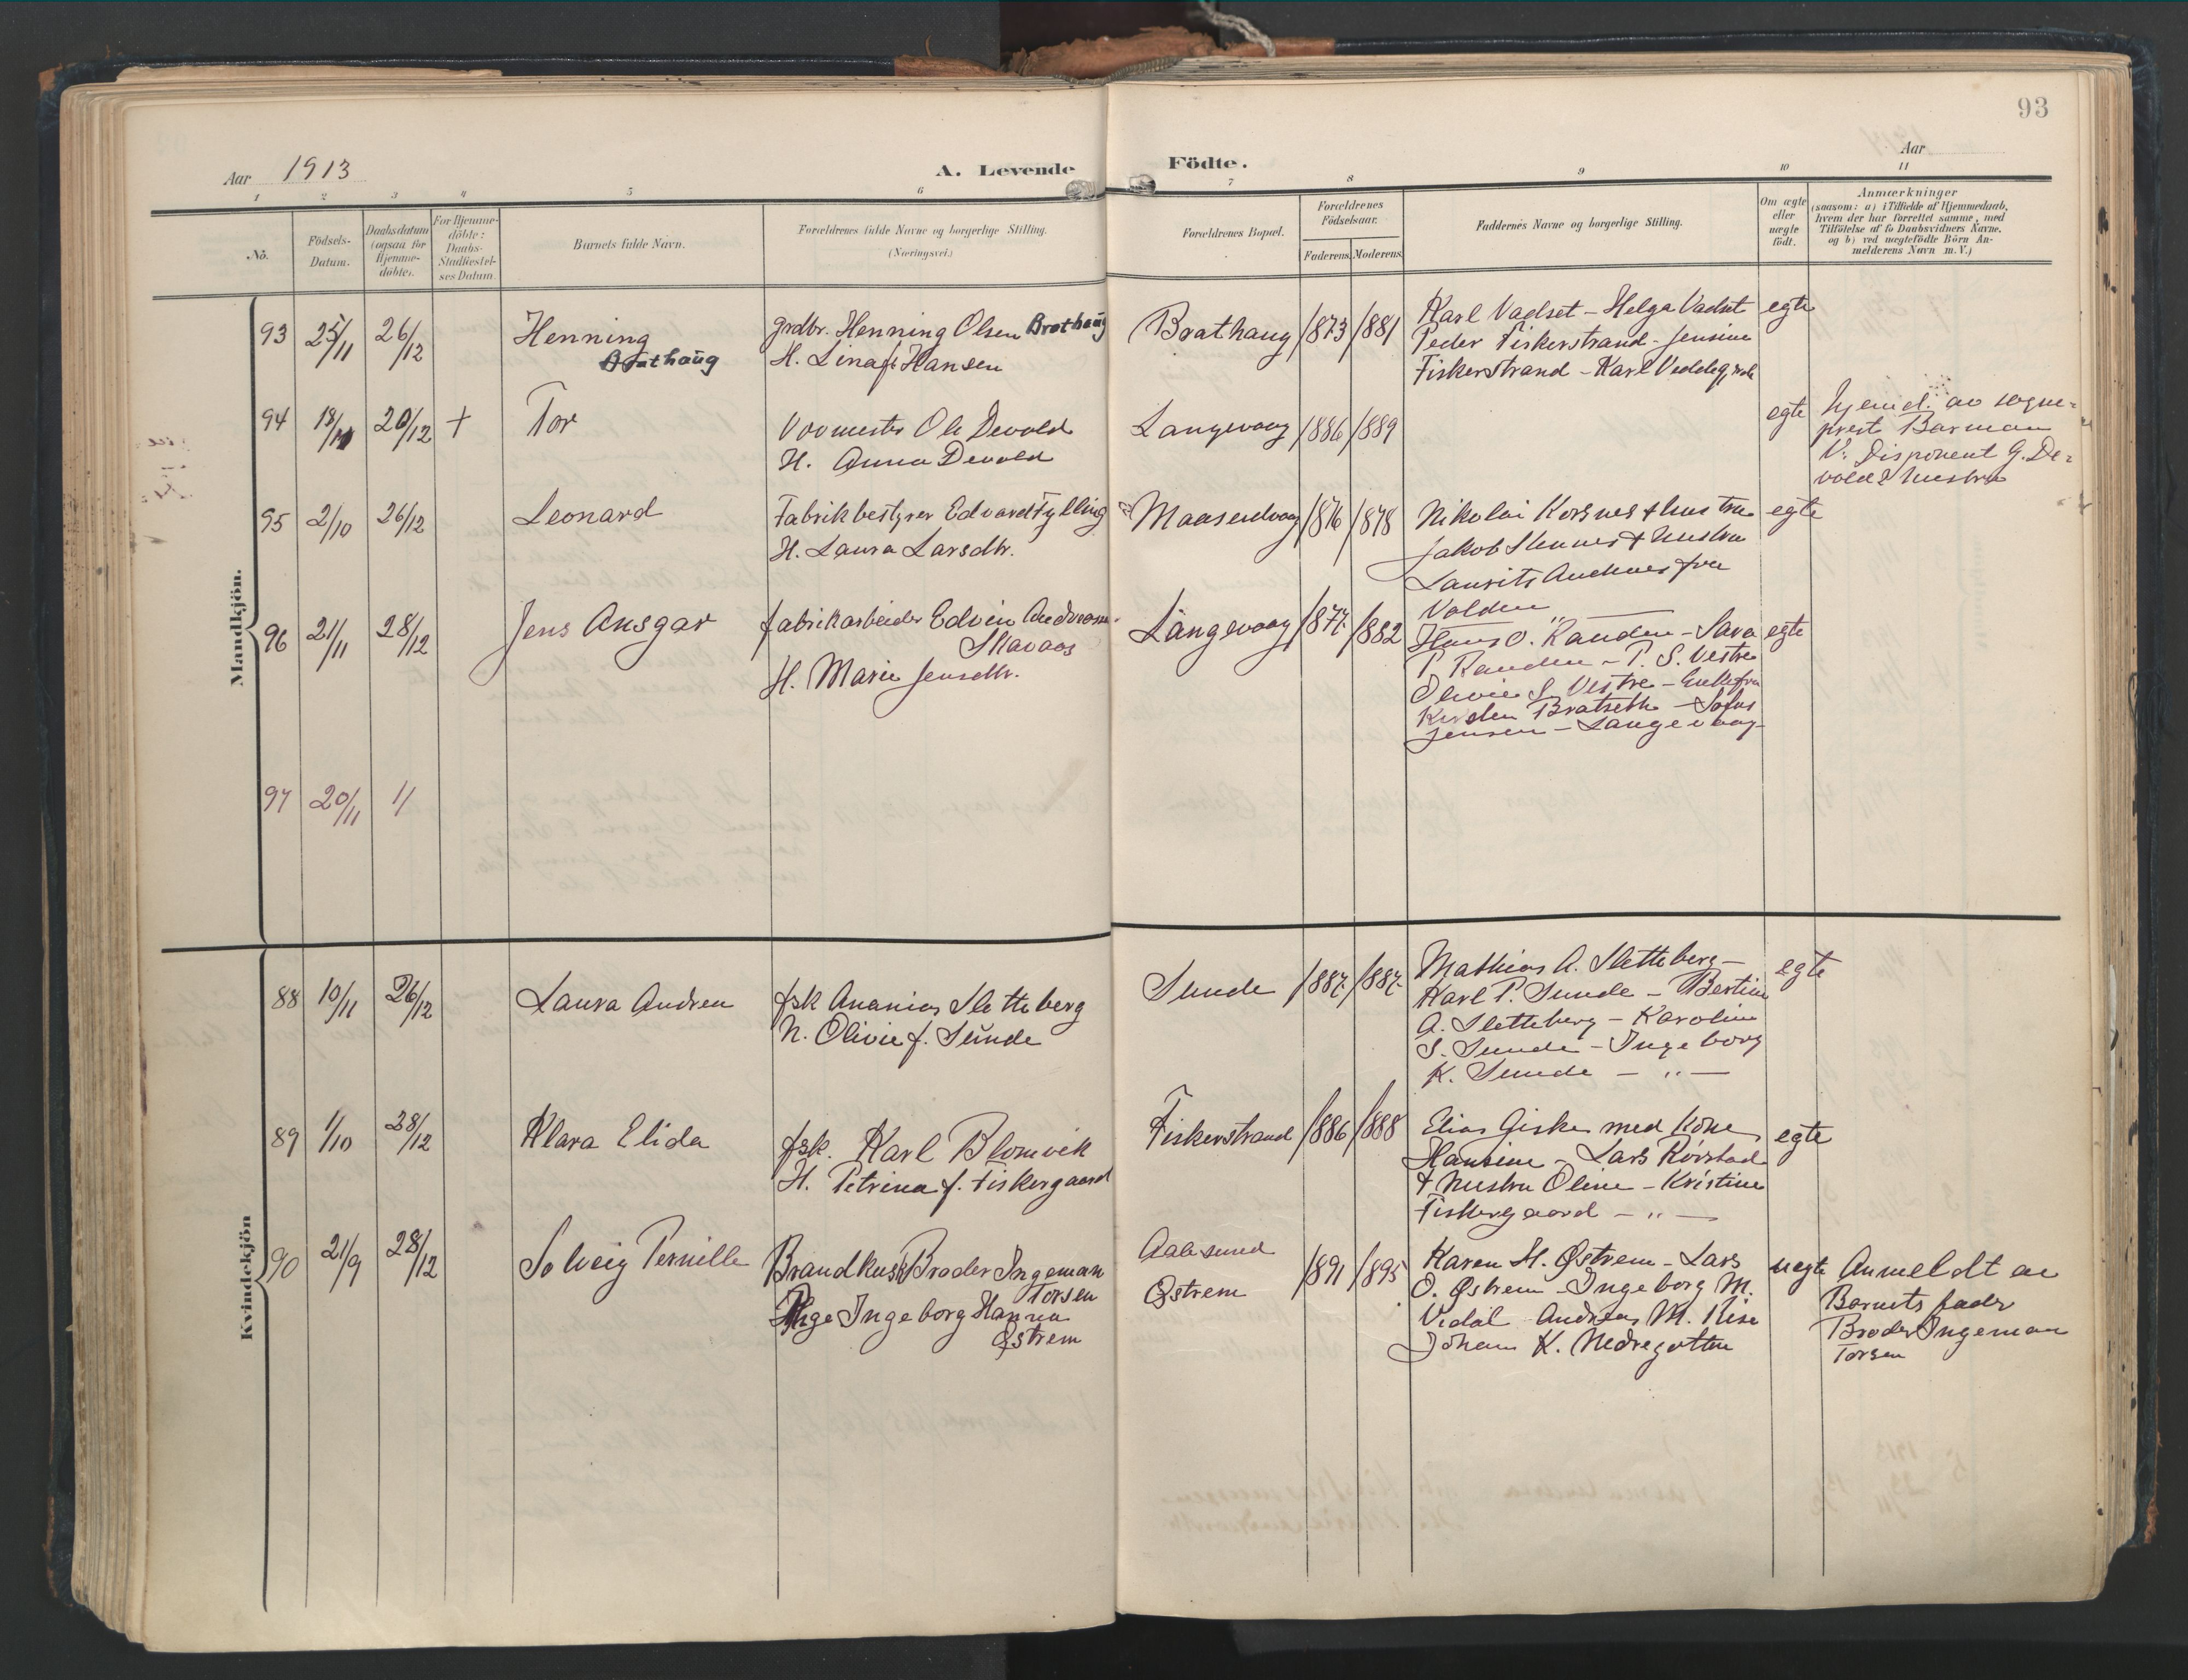 93
Aar 1913
A. Levende Födte.
Aar
1 2 3 4 5 6 7 8 9 10 11
No.
Födsels-Datum.
Daabsdatum (ogsaa for Hjemme-döbte).
For Hjemme-döbte: Daabs-Stadfæstel-ses Datum
Barnets fulde Navn.
Forældrenes fulde Navne og borgerlige Stilling.
(Næringsvei.)
Forældrenes Bopæl.
Forældrenes Födselsaar.
Faderens. Moderens.
Faddernes Navne og borgerlige Stilling.
Om ægte eller uægte födt.
Anmærkninger
(saasom: a) i Tilfælde af Hjemmedaab,
hvem der har forrettet samme, med
Tilföielse af to Daabsvidners Navne.
og b) ved uægtefödte Börn An-
melderens Navn m.V.)
Mandkjön.
93 25/11 26/12 Henning Brathaug
grdbr. Henning Olsen Brathaug
H. Lina f. Hansen
Brathaug 1873 1881
Karl Vadset - Helga Vadset
Peder Fiskerstrand - Jensine
Fiskerstrand - Karl Veddegjerde
egte
94 18/11 20/12 + Tor
Vevmester Ole Devold
H. Anna Devold
Langevaag 1886 1889
egte
hjemd. av sogne-
prest Barman
V: Disponent G. De-
vold & hustru
95 2/10 26/12 Leonard
Fabrikbestyrer Edvard Fylling
H. Laura Larsdtr.
Maaseidvaag 1876 1878
Nikolai Korsnes & hustru
Jakob Slenes & hustru
Laurits Audnes fra
Valden
egte
96 21/11 28/12 Jens Ansgar
fabrikarbeider Edvin Andreas
Skavaas
H. Marie Jensdtr.
Langevaag 1877 1882
Hans O. Randen - Sara
P. Randen - P. S. Vestre
Olivie S. Vestre - Enkefru
Kirsten Bratseth - Sofus
Jensen - Langevaag
egte
97 20/11 1/
Kvindekjön
88 10/11 26/12 Laura Andrea
fsk Ananias Sletteberg
H. Olivie f. Sunde
Sunde 1887 1887
Mathias A. Sletteberg -
Karl P. Sunde - Bertine
A. Sletteberg - Karoline
S. Sunde - Ingeborg
K. Sunde - „ -
egte
89 1/10 28/12 Klara Elida
fsk. Karl Blomvik
H. Petrina f. Fiskergaard
Fiskerstrand 1886 1888
Elias Giske med kone
Hansine - Lars Rørstad
& hustru Oline - Kristine
Fiskergaard - „ -
egte
90 21/9 28/12 Solveig Pernille
Brandkusk Broder Ingeman
Torsen
Pige Ingeborg Hanna
Østrem
Aalesund
Østrem
1891 1895
Karen H. Østrem - Lars
O. Østrem - Ingeborg M.
Vidal - Andreas M. Rise
Johan K. Nedregotten
uegte
Anmeldt av
Barnets fader
Broder Ingeman
Torsen